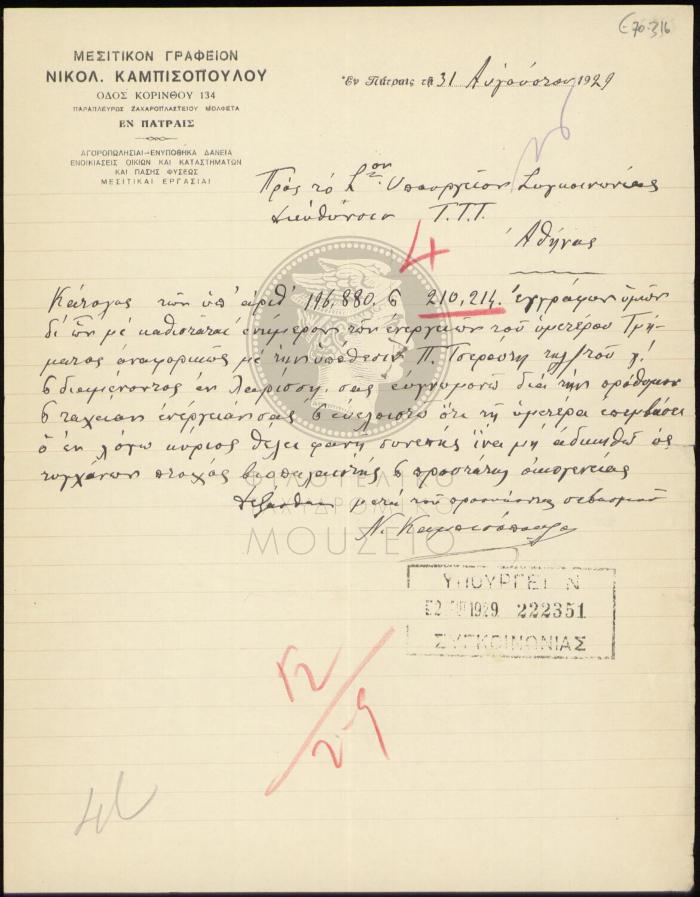 Ε70-316
ΜΕΣΙΤΙΚΟΝ ΓΡΑΦΕΙΟΝ
ΝΙΚΟΛ. ΚΑΜΠΙΣΟΠΟΥΛΟΥ
ΟΔΟΣ ΚΟΡΙΝΘΟΥ 134
ΠΑΡΑΠΛΕΥΡΩΣ ΖΑΧΑΡΟΠΛΑΣΤΕΙΟΥ ΜΟΛΦΕΤΑ
ΕΝ ΠΑΤΡΑΙΣ
ΑΓΟΡΟΠΩΛΗΣΙΑΙ-ΕΝΥΠΟΘΗΚΑ ΔΑΝΕΙΑ
ΕΝΟΙΚΙΑΣΕΙΣ ΟΙΚΙΩΝ ΚΑΙ ΚΑΤΑΣΤΗΜΑΤΩΝ
ΚΑΙ ΠΑΣΗΣ ΦΥΣΕΩΣ
ΜΕΣΙΤΙΚΑΙ ΕΡΓΑΣΙΑΙ
Ἐν Πάτραις τῇ 31 Αὐγούστου 1929
Πρὸς τὸ Σον Ὑπουργεῖον Συγκοινωνίας
Διεύθυνσιν Τ.Τ.Τ.
Ἀθήνας
4
Κάτοχος τῶν ὑπ' ἀριθ 196,880, 210,214. ἐγγράφων ὑμῶν
δι' ὧν με καθιστᾶται ἐνήμερον τῶν ἐνεργειῶν τοῦ ὑμετέρου Τμή-
ματος ἀναφορικῶς μὲ τὴν ὑπόθεσιν Π. Τσερώτη
διαμένοντος ἐν Λαρίσσῃ, σας εὐγνωμονῶ διὰ τὴν πρόθυμον
ταχεῖαν ἐνέργειαν σας εὐελπιστῶ ὅτι τῇ ὑμετέρᾳ ἐπεμβάσει
ὁ ἐν λόγῳ κύριος θέλει φανῆ συνεπὴς ἵνα μὴ ἀδικηθῶ ὡς
τυγχάνων πτωχὸς βιοπαλαιστὴς προστάτης οἰκογενείας
μετὰ τοῦ προσήκοντος σεβασμοῦ
Ν. Καμπισόπουλος
ΦΙΛΟΤΕΛΙΚΟ
ΤΑΧΥΔΡΟΜΙΚΟ
ΜΟΥΣΕΙΟ
ΥΠΟΥΡΓΕΙ Ν
1929 222351
ΣΥΓΚΟΙΝΩΝΙΑΣ
12/2-9